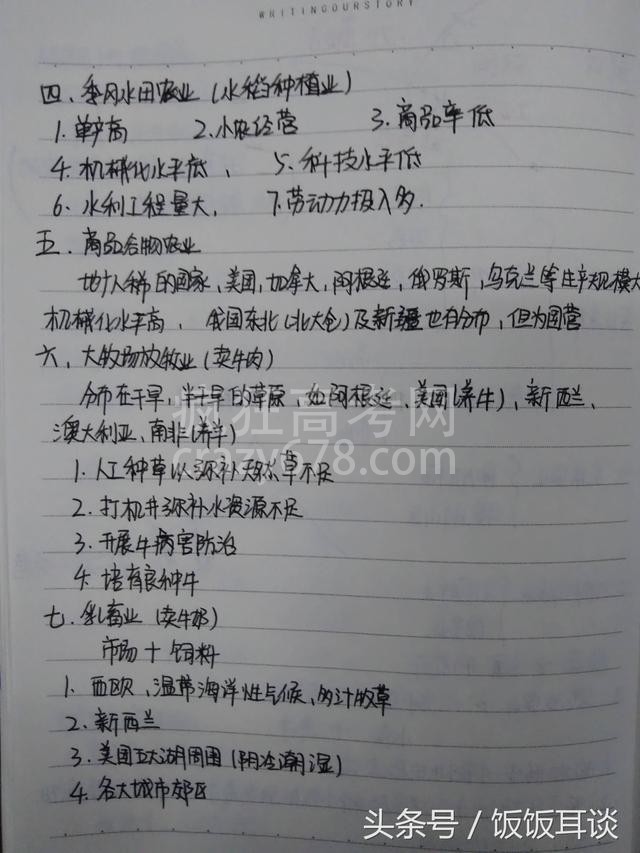 WRITINGOURSTORY
四、季风水田农业（水稻种植业）
1.单产高 2.小农经营 3.商品率低
4.机械化水平低、 5.科技水平低
6.水利工程量大、 7.劳动力投入多.
五.商品谷物农业
地广人稀的国家、美国,加拿大,阿根廷,俄罗斯,乌克兰等生产规模大
机械化水平高、我国东北(北大仓)及新疆也有分布,但为国营
六、大牧场放牧业(卖牛肉)
分布在干旱,半干旱的草原、如阿根廷、美国(养牛)、新西兰、
澳大利亚、南非(养羊)
疯狂高考网
crazy678.com
1.人工种草以弥补天然草不足
2.打机井弥补水资源不足
3.开展牛病害防治
4.培育良种牛
七.乳畜业(卖牛奶)
市场+饲料
1.西欧、温带海洋性气候、多汁牧草
2.新西兰
3.美国五大湖周围(阴冷潮湿)
4.各大城市郊区
头条号／饭饭耳谈